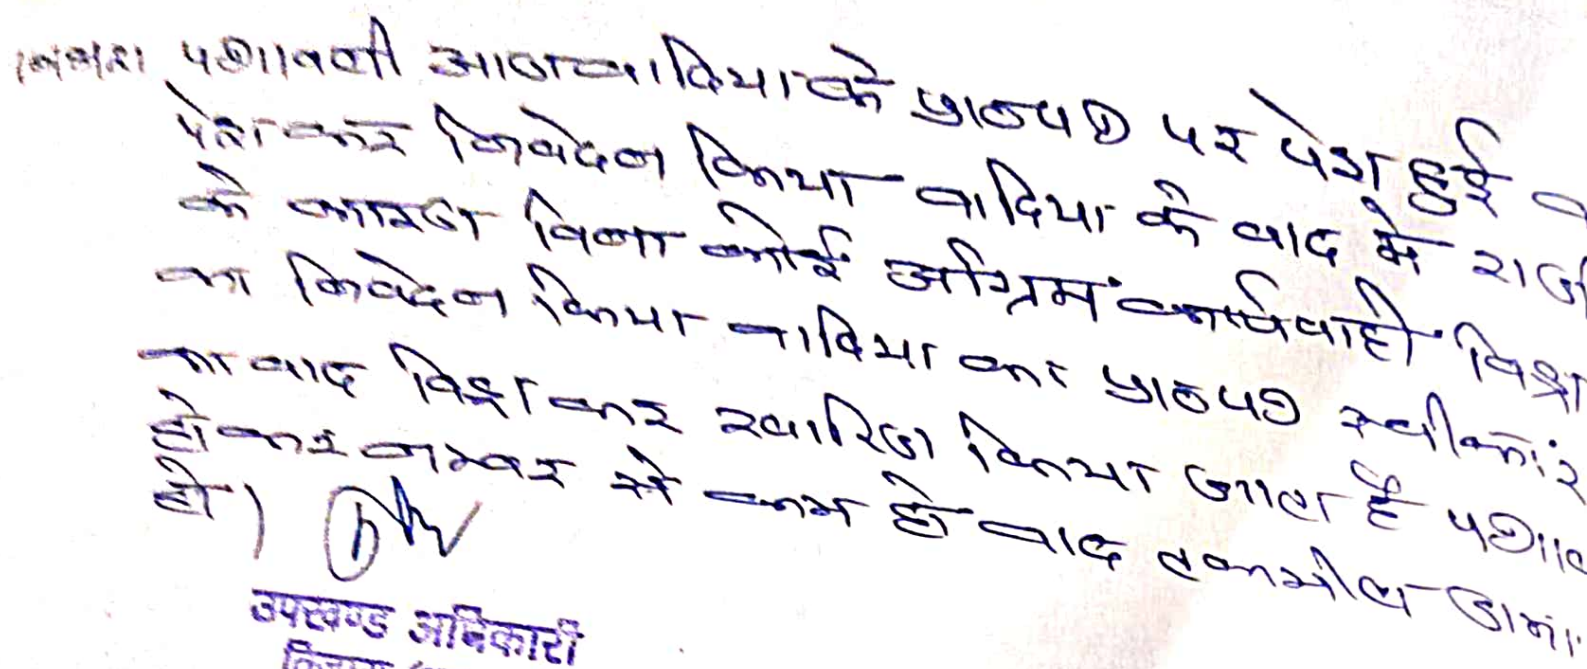 पत्रावली आज वादिया के प्रा०पत्र पर पेश हुई
पेश कर निवेदन किया वादिया के वाद मे
के कारण बिना कोई अग्रिम कार्यवाही
का निवेदन किया वादिया का प्रा०पत्र स्वीकार
का वाद कर खारिज किया जाता है
होकर नम्बर से कम हो वाद तकमील
हो।
उपखण्ड अधिकारी